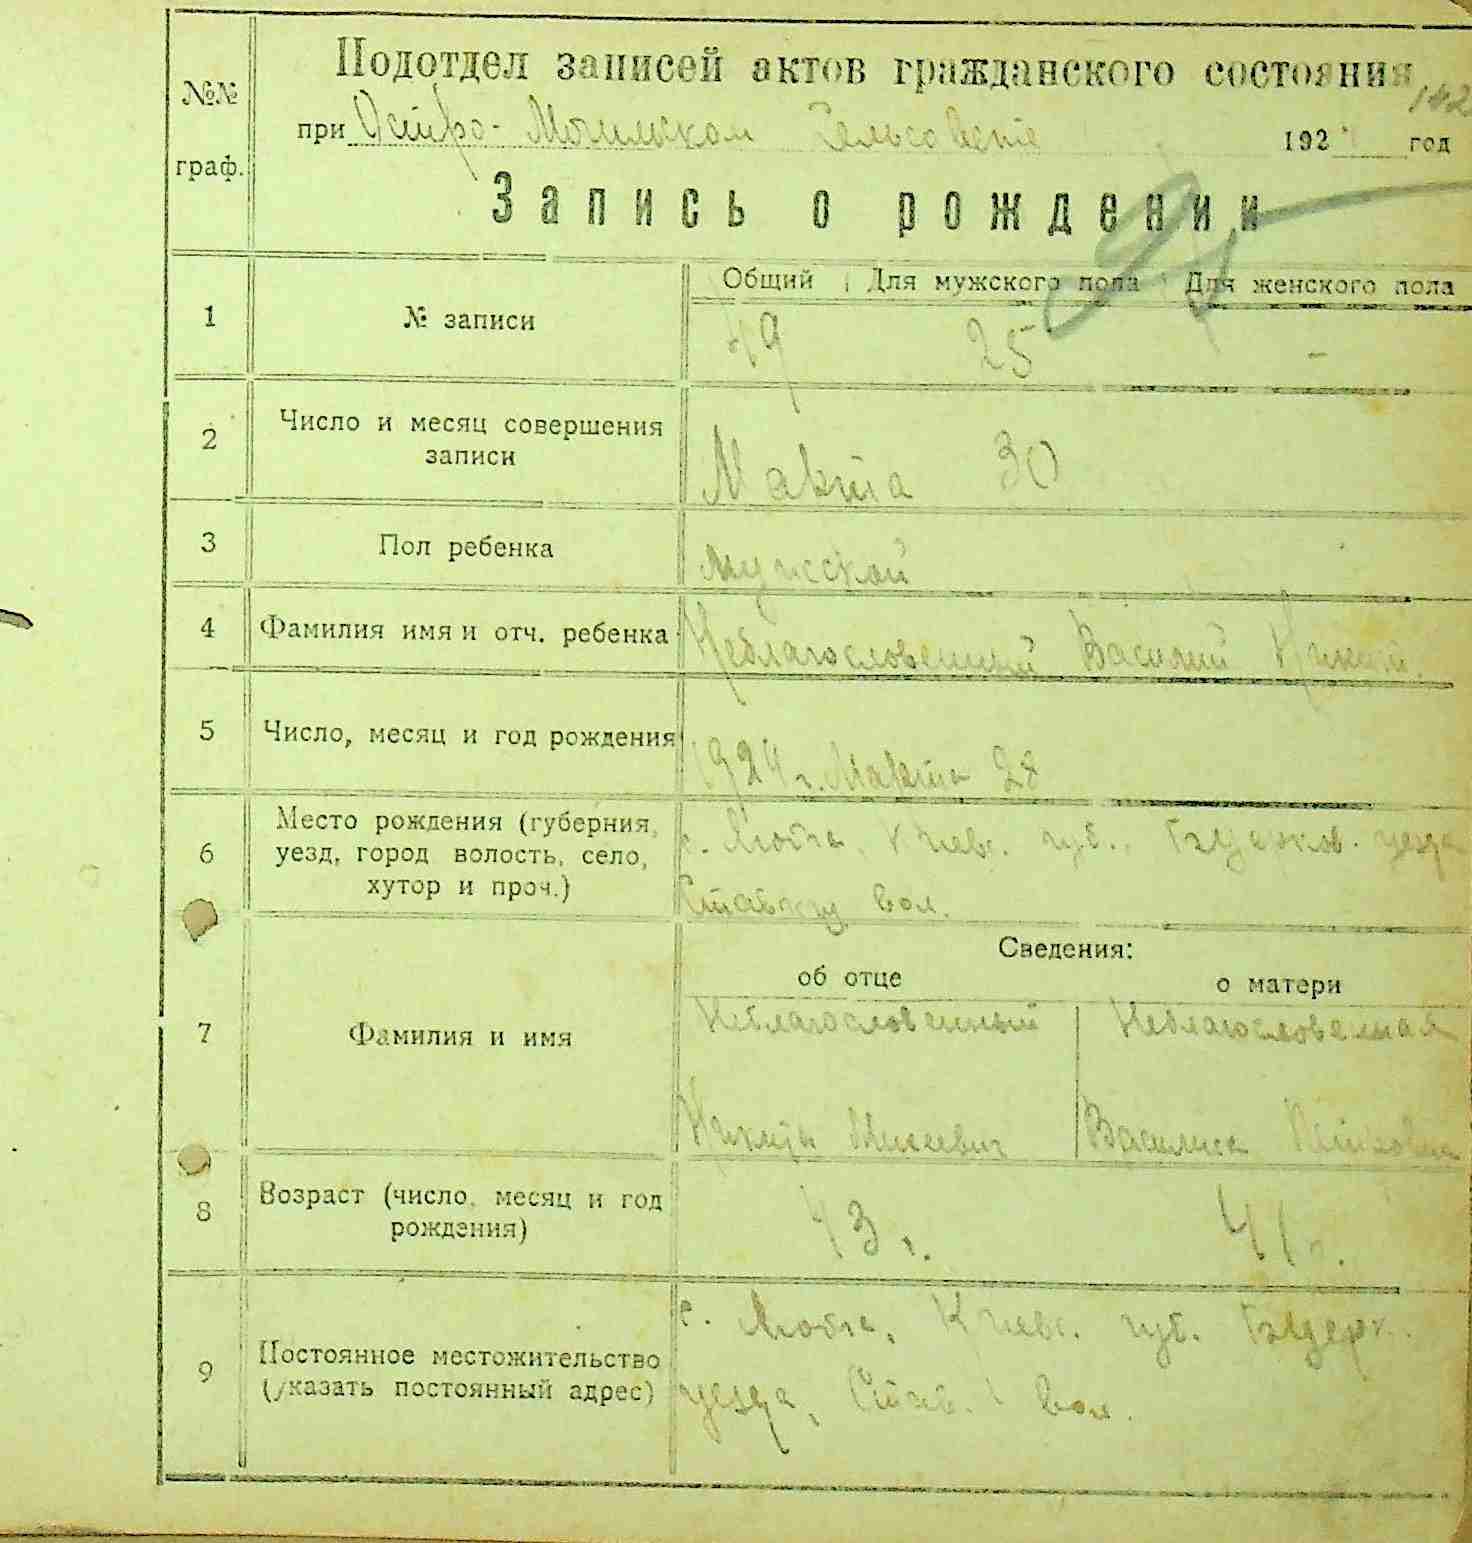 №№ граф.
Подотдел записей актов гражданского состояния
142
при Остро-Могильском Сельсовете 192 год
Запись о рождении
1 № записи
Общий Для мужского пола Для женского пола
49 25 -
2 Число и месяц совершения записи
Марта 30
3 Пол ребенка
мужской
4 Фамилия имя и отч. ребенка
Неблагословенный Василий Никит.
5 Число, месяц и год рождения
1924 г. Марта 28
6 Место рождения (губерния, уезд, город волость, село, хутор и проч.)
с. Киев. губ. Б/Церков. уезда
вол.
Сведения:
об отце о матери
7 Фамилия и имя
Неблагословенный Неблагословенная
Никита Василиса
8 Возраст (число, месяц и год рождения)
43 г. 41 г.
9 Постоянное местожительство (указать постоянный адрес)
с. Киев. губ. Б/Церк.
уезда, Став. вол.